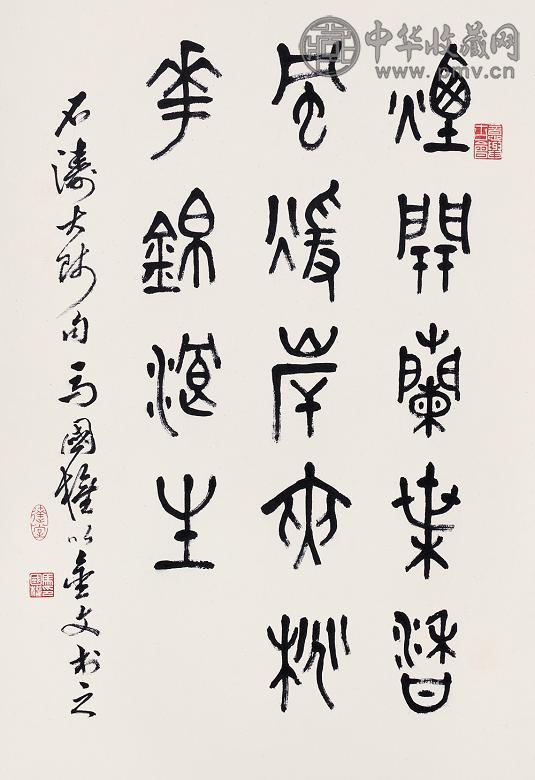 中华收藏网
www.pmv.cn
煙開蘭葉香
風煖岸夾桃
華錦浪生
石濤大師句馬國權以金文書之